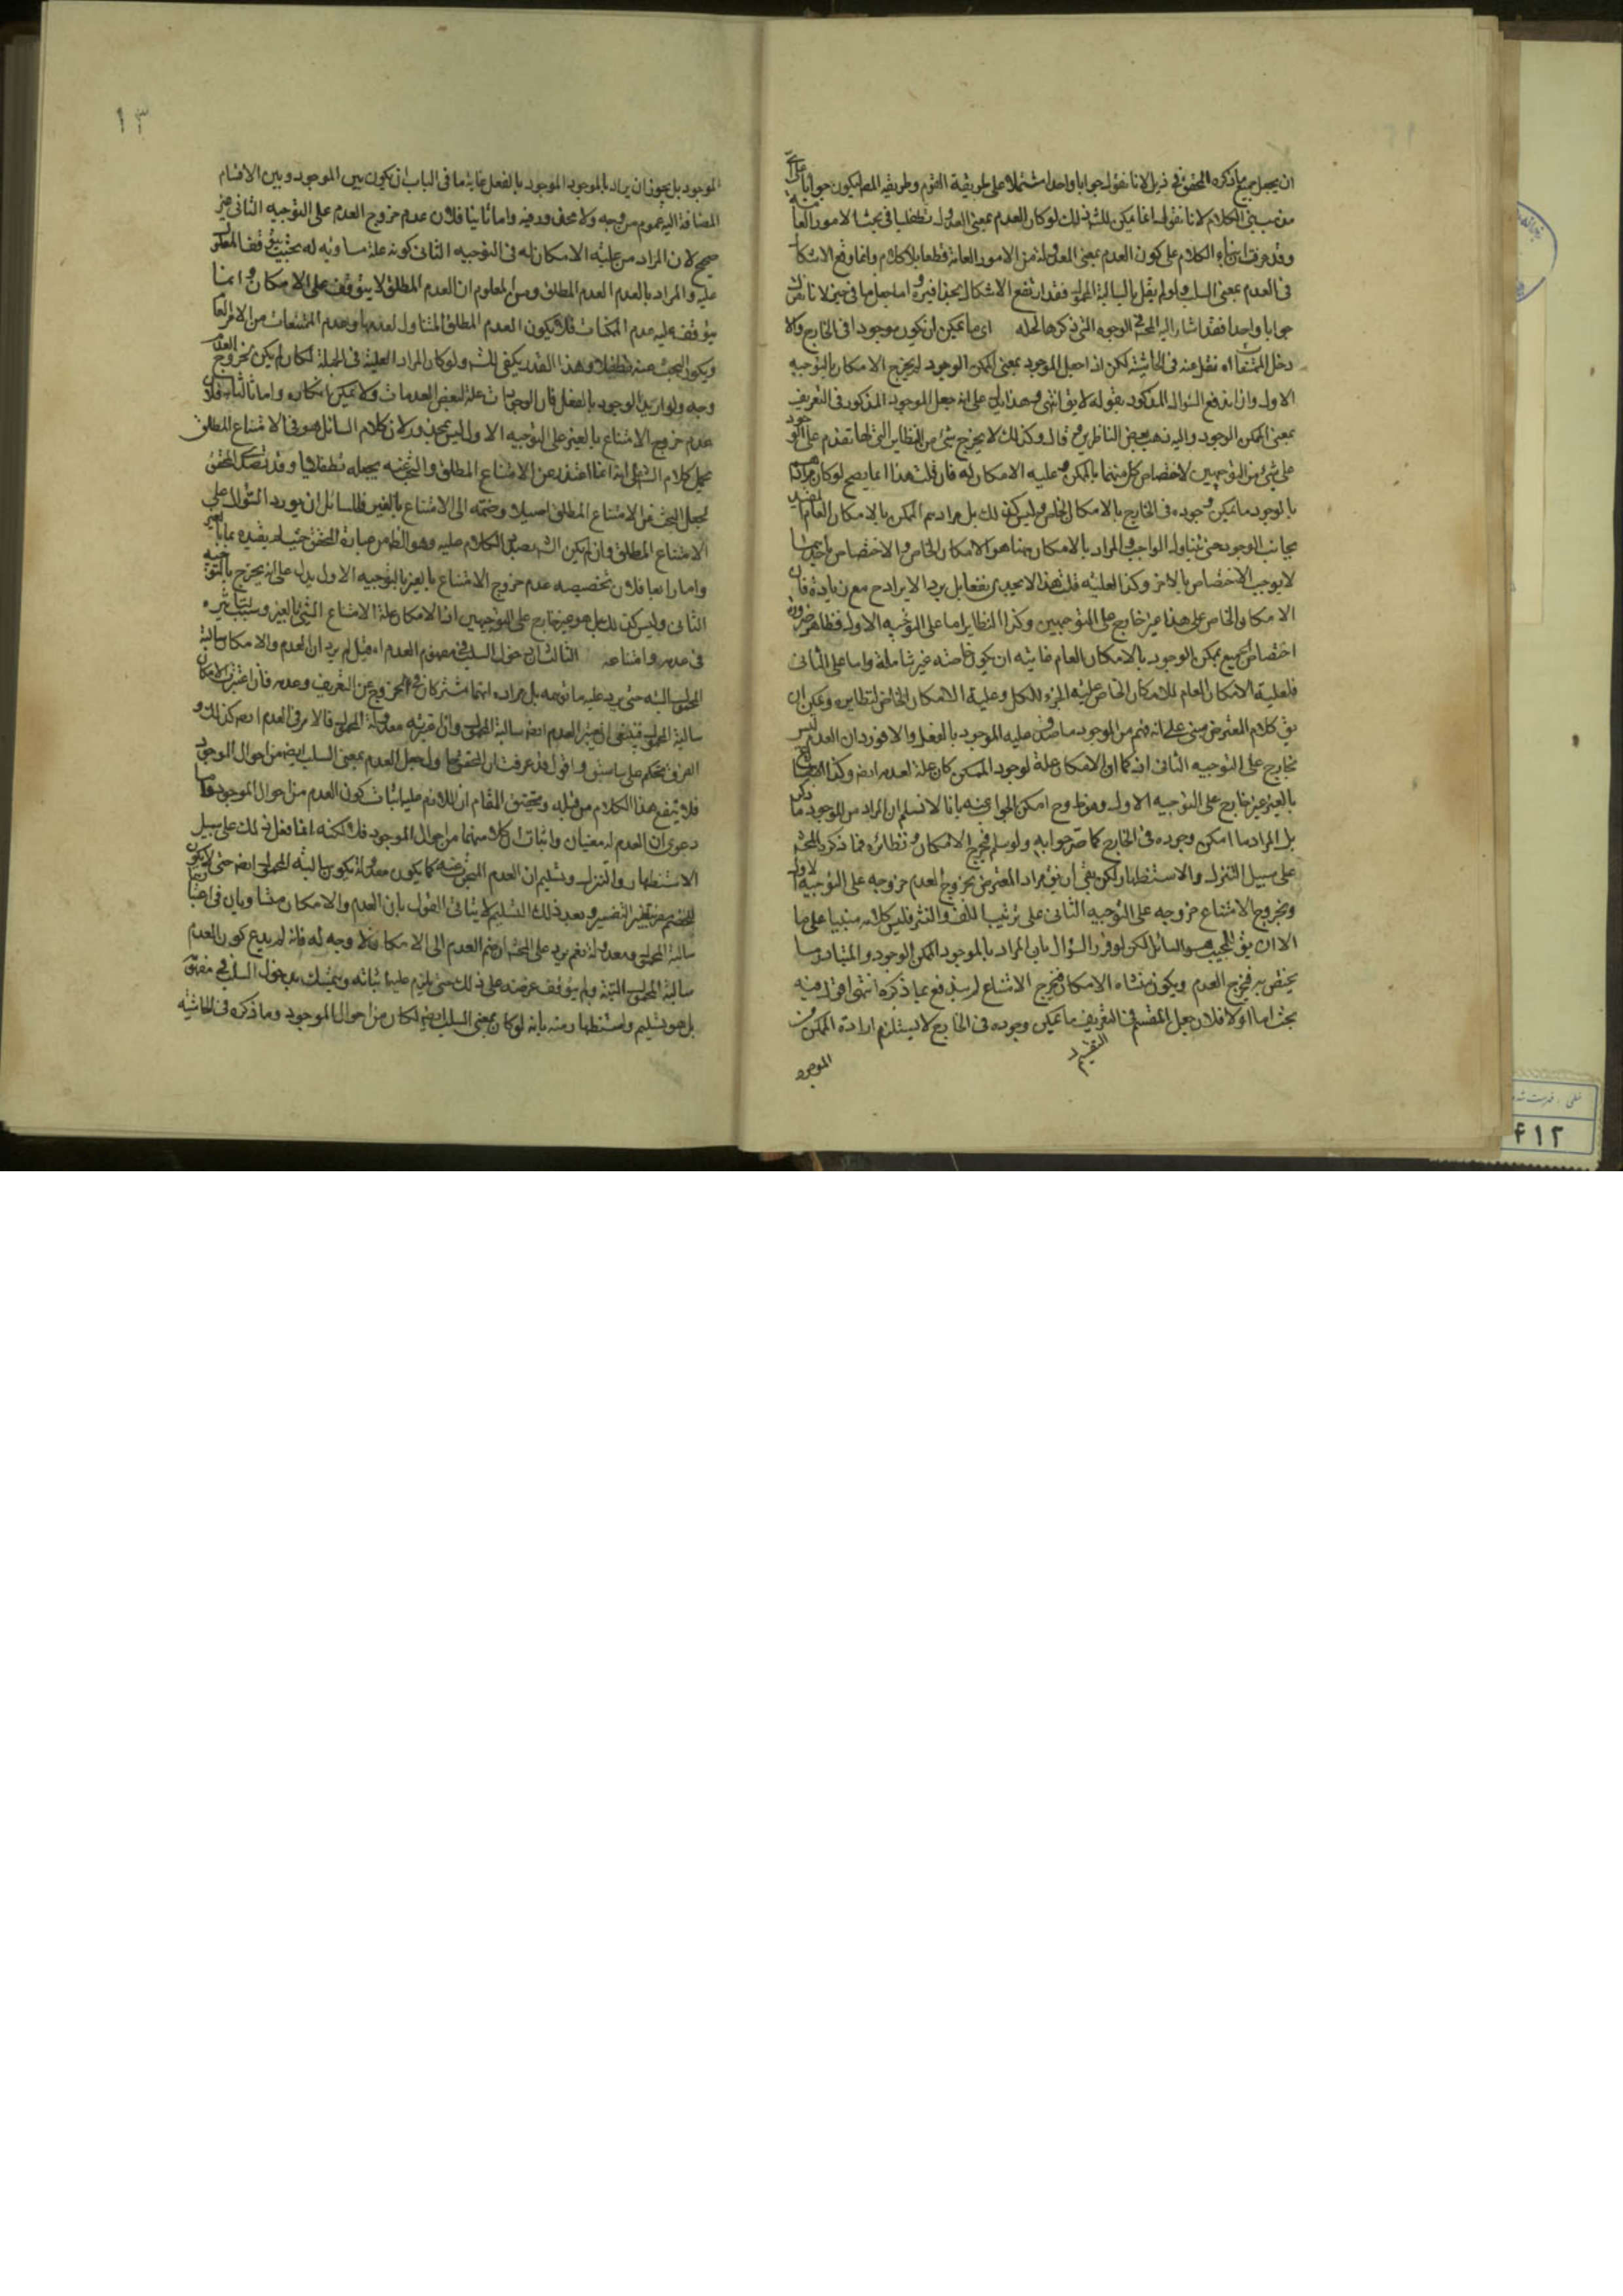 ان يجعل جميع ما ذكره المحقق في ذيل لانا نقول جوابا واحدا مشتملا على طريقة القوم وطريقة المص ليكون جوابا على
الكلام لانا نقول انما يمكن ذلك لو كان العدم بمعنى العدول تطفليا في بحث الامور العا
وقد عرفت ان بناء الكلام على كون العدم بمعنى المعدولة من الامور العامة قطعا بلا كلام وانما وقع الاشكا
في العدم بمعنى السلب ولو لم يقل بالسالبة المحمول فقد ارتفع الاشكال بحذافيره واما جعل ما في حيز لانا نقول
جوابا واحدا فقد اشار اليه المحشى في الوجوه التي ذكرها لحله اى ما يمكن ان يكون موجودا في الخارج والا
دخل الممتنعات اه نقل عنه في الحاشية لكن اذا جعل الموجود بمعنى الممكن الوجود لم يخرج الامكان بالتوجيه
الاول وان اندفع السؤال المذكور بقوله لا يق انتهى وهذا يدل على انه جعل الموجود المذكور في التعريف
بمعنى الممكن الوجود واليه ذهب بعض الناظرين قال وكذلك لا يخرج شئ من النظاير التي لها تقدم على الوجود
على شئ من التوجيهين لاختصاص كل منهما بالممكن وعليه الامكان له فان قلت هذا انما يصح لو كان مرادنا
بالموجود ما يمكن وجوده في الخارج بالامكان الخاص وليس كذلك بل مرادهم الممكن بالامكان العام المقيد
بجانب الوجود حتى يتناول الواجب والمراد بالامكان ههنا هو الامكان الخاص والاختصاص باحدهما
لا يوجب الاختصاص بالاخر وكذا العلية قلت هذا لا يجدى نفعا بل يرد الايراد ح مع زيادة فان
الامكان الخاص على هذا غير خارج على التوجيهين وكذا النظاير اما على التوجيه الاول فظاهر ضرورة
اختصاص الجميع بممكن الوجود بالامكان العام غايته ان يكون خاصة غير شاملة واما على الثانى
فلعلية الامكان العام للامكان الخاص علية الجزء للكل وعلية الامكان الخاص لنظايره ويمكن ان
يق كلام المعترض مبنى على انه فهم من الموجود ما صدق عليه الموجود بالفعل والا فورد ان العدم ليس
بخارج على التوجيه الثانى اذ كما ان الامكان علة لوجود الممكن كان علة لعدمه ايضه وكذا الامتناع
بالغير غير خارج على التوجيه الاول وهو ظ وح امكن الجواب عنه بانا لا نسلم ان المراد من الموجود ما ذكر
بل المراد ما امكن وجوده في الخارج كما صرحوا به ولو سلم فخرج الامكان و نظائره فما ذكره المحشى
على سبيل التنزل والاستظهار لكن بقى ان يق مراد المعترض بخروج العدم خروجه على التوجيه الاول
وبخروج الامتناع خروجه على التوجيه الثانى على ترتيب اللف والنشر فليس كلامه مبنيا على ما
الا ان يق المجيب هو السائل لكن لو قرر السؤال بان المراد بالموجود الممكن الوجود والمتبادر ما
يختص به فخرج العدم ويكون منشاه الامكان فخرج الامتناع لم يندفع بما ذكره انتهى اقول فيه
بحث اما اولا فلان جعل المقسم في التعريف ما يمكن وجوده في الخارج لا يستلزم ارادة الممكن من
التقسيم
الموجود
١٣
الموجود بل يجوز ان يراد بالموجود الموجود بالفعل غاية ما في الباب ان يكون بين الموجود وبين الاقسام
المضافة اليه عموم من وجه ولا محذور فيه واما ثانيا فلان عدم خروج العدم على التوجيه الثانى غير
صحيح لان المراد من علية الامكان له في التوجيه الثانى كونه علة مساوية له بحيث يتوقف المعلول
عليه والمراد بالعدم العدم المطلق ومن المعلوم ان العدم المطلق لا يتوقف على الامكان وانما
يتوقف عليه عدم الممكنات فلا يكون العدم المطلق المتناول لعدمها وعدم الممتنعات من الامور العا
ويكون البحث عنه تطفلا وهذا القدر يكفى للش ولو كان المراد العلية في الجملة لكان لم يكن لخروج العدم
وجه ولو اريد الوجود بالفعل فان الوجودات علة لبعض العدمات ولا يمكن انكاره واما ثالثا فلان
عدم خروج الامتناع بالغير على التوجيه الاول ليس بمحذور لان كلام السائل هو في الامتناع المطلق
يحمل كلام الش على انه انما اعتذر عن الامتناع المطلق والبحث عنه بجعله تطفليا وقد تمسك المحقق
لجعل البحث عن الامتناع المطلق اصيلا وضمه الى الامتناع بالغير فللسائل ان يورد السؤال على
الامتناع المطلق وان لم يكن الش بصدد الكلام عليه وهو الظ من عبارة المحقق حيث لم يقيده بما بالغير
واما رابعا فلان تخصيصه عدم خروج الامتناع بالغير بالتوجيه الاول يدل على انه يخرج بالتوجيه
الثانى وليس كذلك بل هو غير خارج على التوجيهين اذ الامكان علة لامتناع الشئ بالغير وسبب لتاثيره
في عدمه وامتناعه الثالث ان دخول السلب في مفهوم العدم اه قيل لم يرد ان العدم والامكان سالبة
المحمول البتة حتى يرد عليه ما توهمه بل مراده انهما مشتركان في الخروج عن التعريف وعدمه فان اعتبر الامكان
سالبة المحمول فينبغى ان يعتبر العدم ايضه سالبة المحمول وان اعتبر معدولة المحمول فالامر في العدم ايضه كذلك و
الفرق تحكم على ما سبق واقول قد عرفت ان المحقق لم يجعل العدم بمعنى السلب ايضه من احوال الموجود
فلا ينفع هذا الكلام من قبله وتحقيق المقام ان اللازم علينا اثبات كون العدم من احوال الموجود واما
دعوى ان العدم له معنيان واثبات ان كلا منهما من احوال الموجود فلا لكنه انما فعل ذلك على سبيل
الاستظهار والتنزل وتسليم ان العدم المبحوث عنه كما يكون معدولة يكون سالبة المحمول ايضه حتى لا يكون
للخصم مفر بتغيير التفسير وبعد ذلك التسليم لا ينافى القول بان العدم والامكان متساويان في اعتبا
سالبة المحمول ومعدولة نعم يرد على المحشى ان ضم العدم الى الامكان لا وجه له فانه لم يدع كون العدم
سالبة المحمول البتة ولم يتوقف غرضه على ذلك حتى يلزم علينا اثباته ويتمسك بدخول السلب في مفهومه
بل هو تسليم واستظهار منه بانه لو كان بمعنى السلب ايضه لكان من احوال الموجود وما ذكره في الحاشية
٤١٢